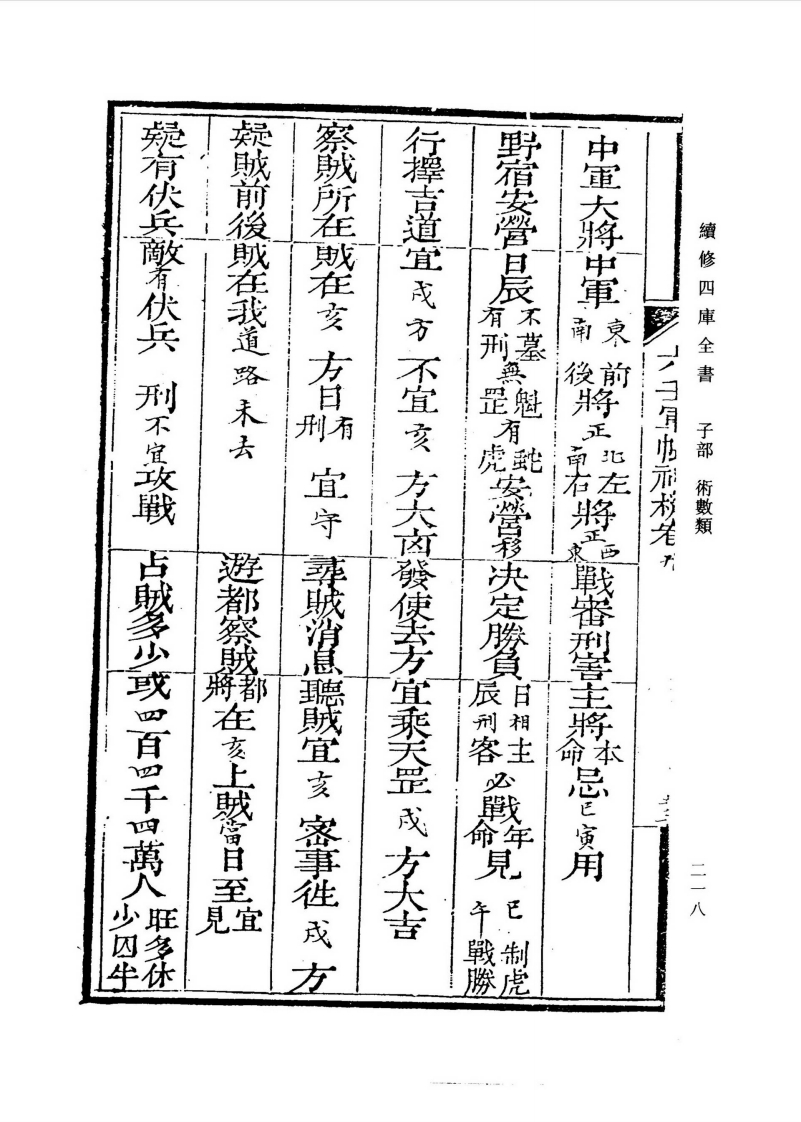 續修四庫全書 子部 術數類
二一八
六壬軍帳神機卷
中軍大將中軍東南前後將正北正南左右將正西正東戰審刑害主將本命忌巳寅用
野宿安營日辰不墓有刑無魁罡有虵虎安營移決定勝負日辰相刑主客必戰年命見巳午制虎戰勝
行擇吉道宜戌方不宜亥方大凶發使去方宜乘天罡戌方大吉
察賊所在賊在亥方日有刑宜守尋賊消息聽賊宜亥密事徃戌方
疑賊前後賊在我道路未去遊都察賊都將在亥上賊當日至宜見
疑有伏兵敵有伏兵刑不宜攻戰占賊多少或四百四千四萬人旺多休少囚半